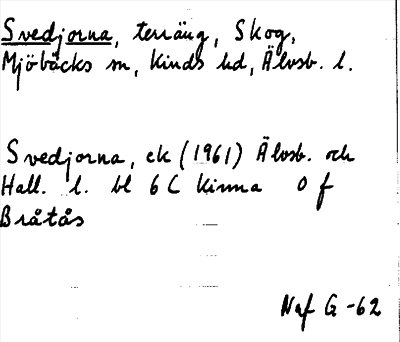 Svedjorna, terräng, Skog,
Mjöbäcks sn, Kinds hd, Älvsb. l.
Svedjorna, ek (1961) Älvsb. och
Hall. l. bl 6 C Kinna 0 f
Bråtås
Naf G -62